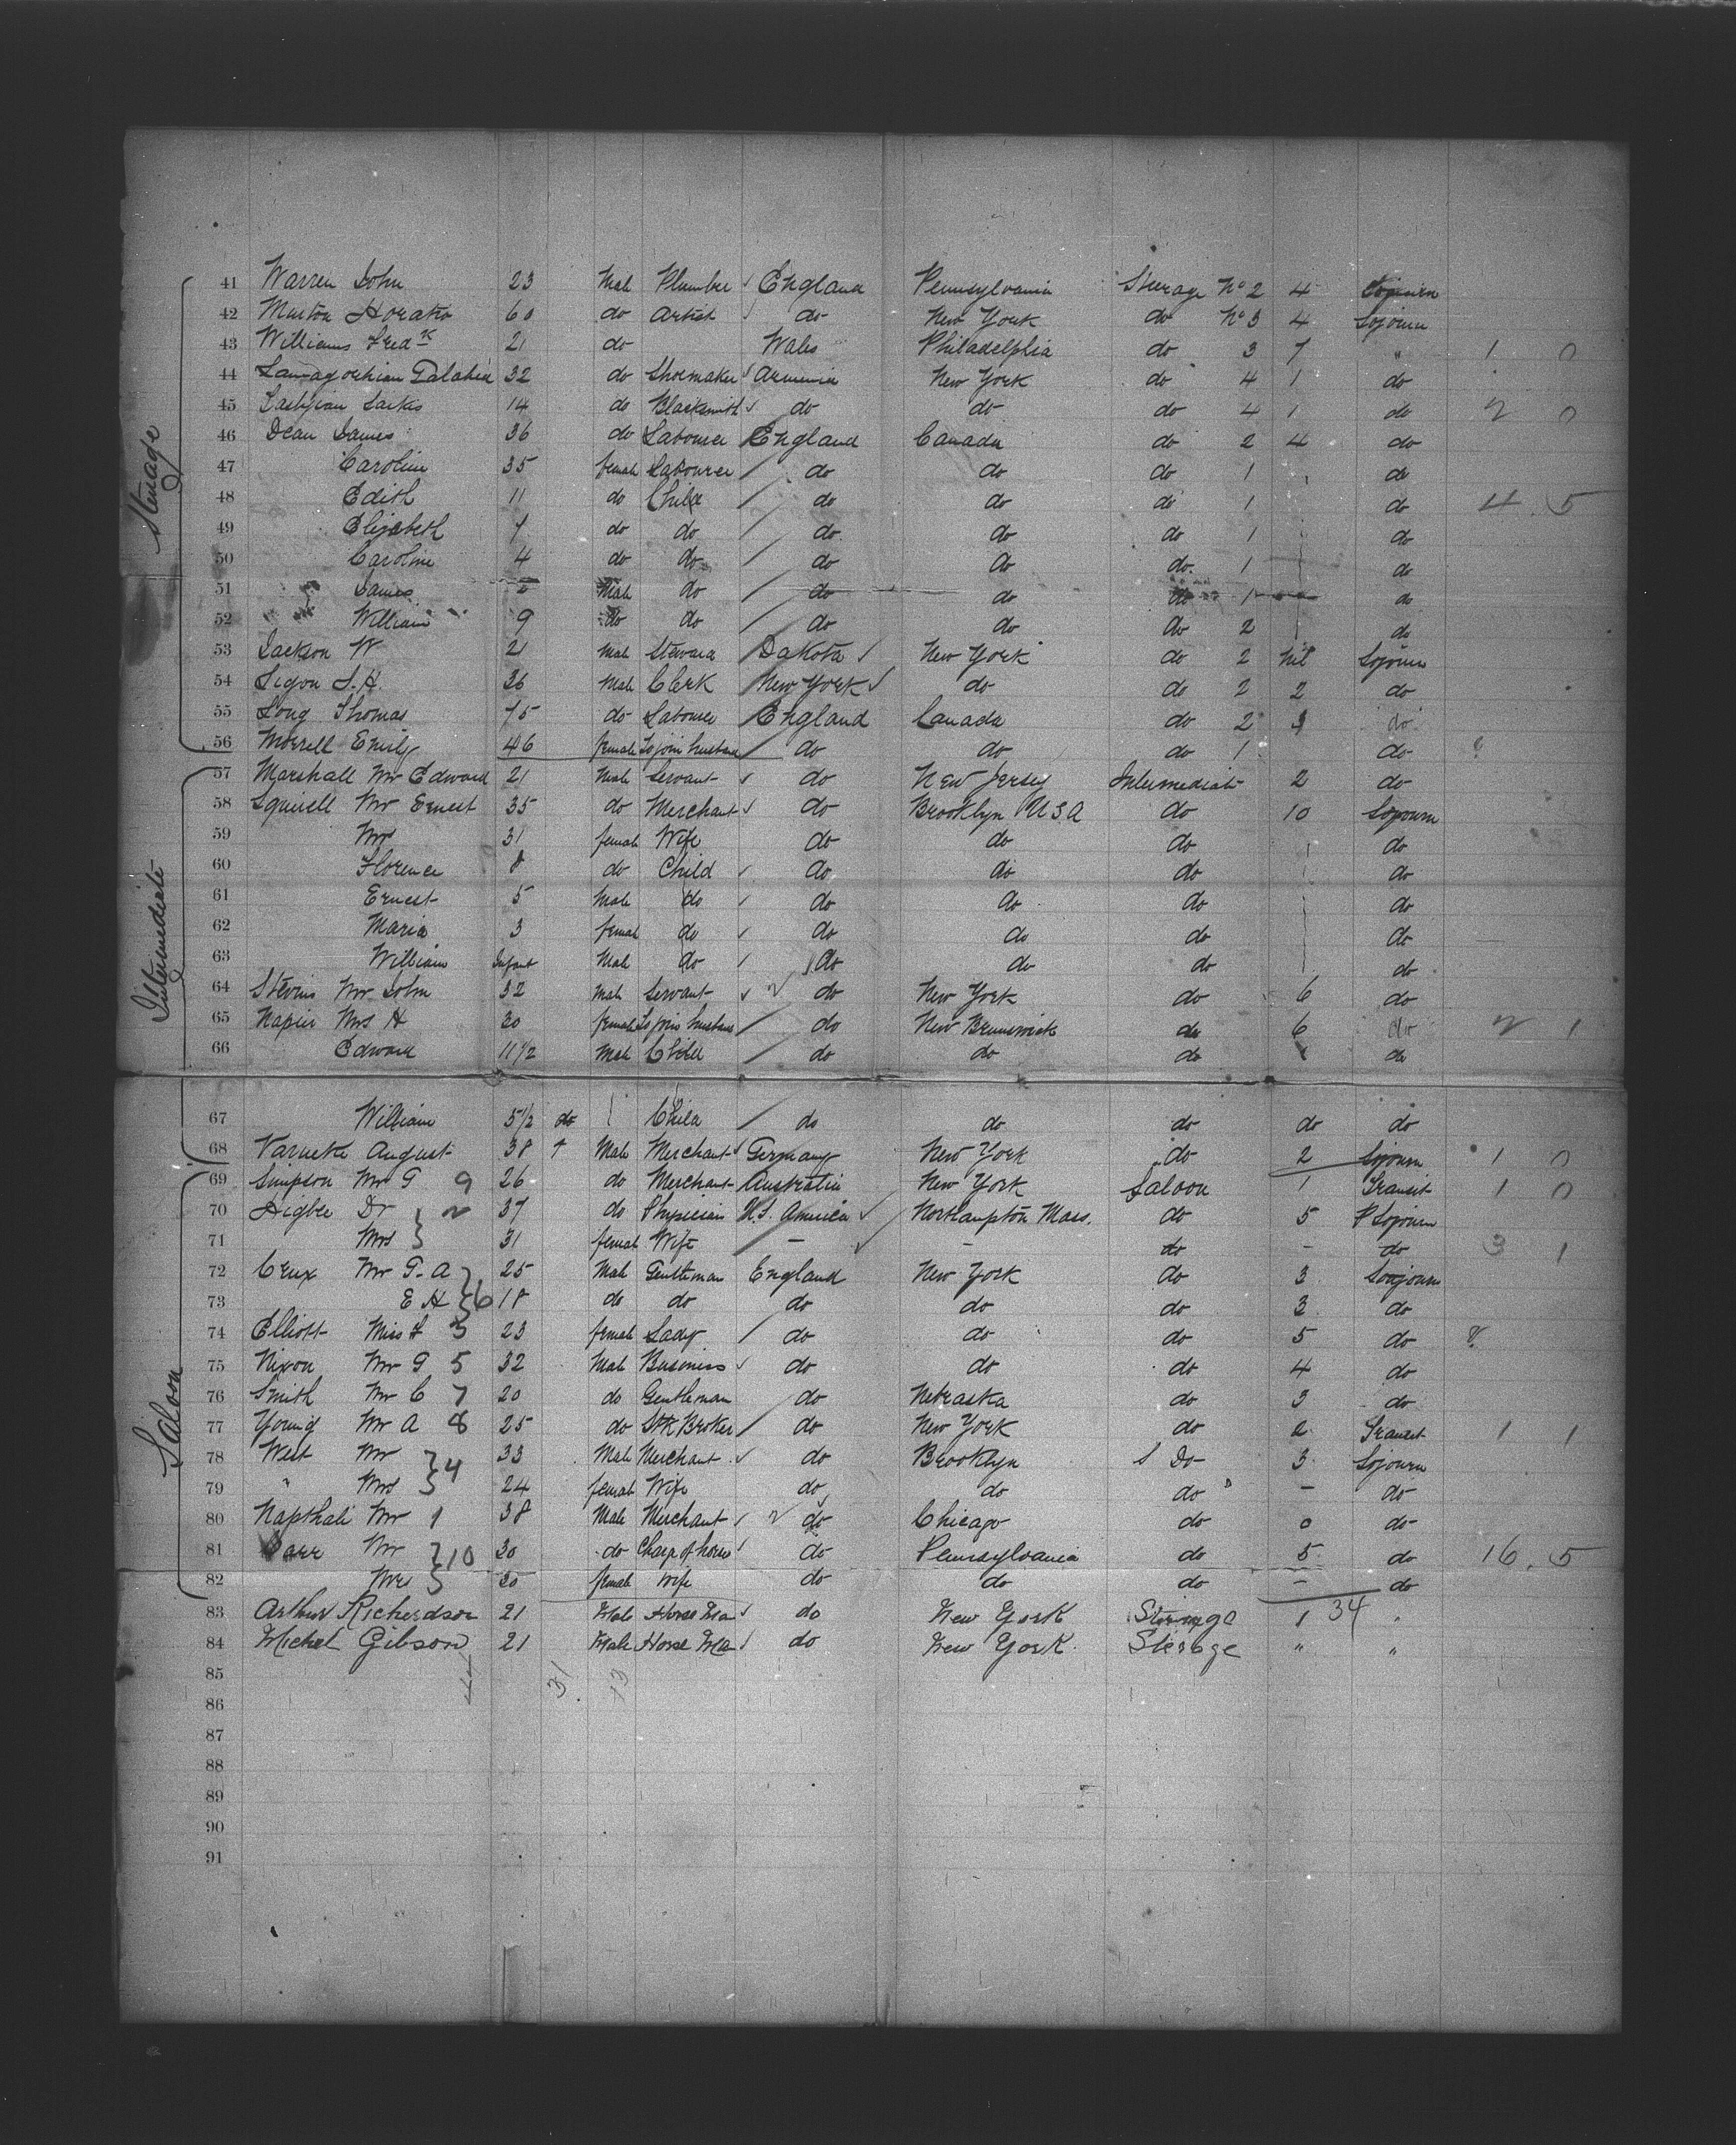 Steerage
41 Warren John 23 Male Plumber England Pennsylvania Steerage No 2 4 Sojourn
42 Horatio 60 do Artist do New York do No 3 4 Sojourn
43 Williams Fredk 21 do Wales Philadelphia do 3 7 " 1 0
44 32 do Shoemaker Armenia New York do 4 1 do
45 Sarkis 14 do Blacksmith do do do 4 1 do 2 0
46 Dean James 36 do Labourer England Canada do 2 4 do
47 Caroline 35 female Labourer do do do 1 do
48 Edith 11 do Child do do do 1 do 4 . 5
49 Elizabeth 7 do do do do do 1 do
50 Caroline 4 do do do do do. 1 do
51 James Male do do do do 1 do
52 William 9 do do do do do 2 do
53 Jackson W 21 Male Steward Dakota New York do 2 nil Sojourn
54 36 Male Clerk New York do do 2 2 do
55 Long Thomas 75 do Labourer England Canada do 2 do
56 Morrell Emily 46 female To join husband do do do 1 do
Intermediate
57 Marshall Mr Edward 21 Male Servant do New Jersey Intermediate 2 do
58 Squirell Mr Ernest 35 do Merchant do Brooklyn U S A do 10 Sojourn
59 Mrs 31 female Wife do do do do
60 Florence 8 do Child do do do do
61 Ernest 5 Male do do do do do
62 Maria 3 female do do do do do
63 William Infant Male do do do do do
64 Stevens Mr John 32 Male Servant do New York do 6 do
65 Napier Mrs H 30 female To join husband do New Brunswick do 6 do 2 1
66 Edward 11 1/2 Male Child do do do do
67 William 5 1/2 do Child do do do do do
68 August 38 Male Merchant Germany New York do 2 Sojourn 1 0
Saloon
69 Simpson Mr G 9 26 do Merchant Australia New York Saloon 1 Transit 1 0
70 Higbee Dr 2 37 do Physician U.S. America Northampton Mass. do 5 P Sojourn
71 Mrs 31 female Wife - - do - do 3 1
72 Crux Mr G. A 25 Male Gentleman England New York do 3 Soujourn
73 E H 6 18 do do do do do 3 do
74 Elliott Miss F 3 23 female Lady do do do 5 do
75 Nixon Mr G 5 32 Male Business do do do 4 do
76 Smith Mr C 7 20 do Gentleman do Nebraska do 3 do
77 Young Mr A 8 25 do Stk Broker do New York do 2 Transit 1 1
78 West Mr 4 33 Male Merchant do Brooklyn Do 3 Sojourn
79 " Mrs 24 female Wife do do do - do
80 Napthali Mr 1 38 Male Merchant do Chicago do 0 do
81 Mr 10 30 do Charge of horses do Pennsylvania do 5 do 16. 5
82 Mrs female Wife do do do - do
83 Arthur Richerdson 21 Male Horse Man do New York Sterage 1 34 "
84 Michel Gibson 21 Male Horse Man do New York Sterage " "
85 44 31. 13
86
87
88
89
90
91